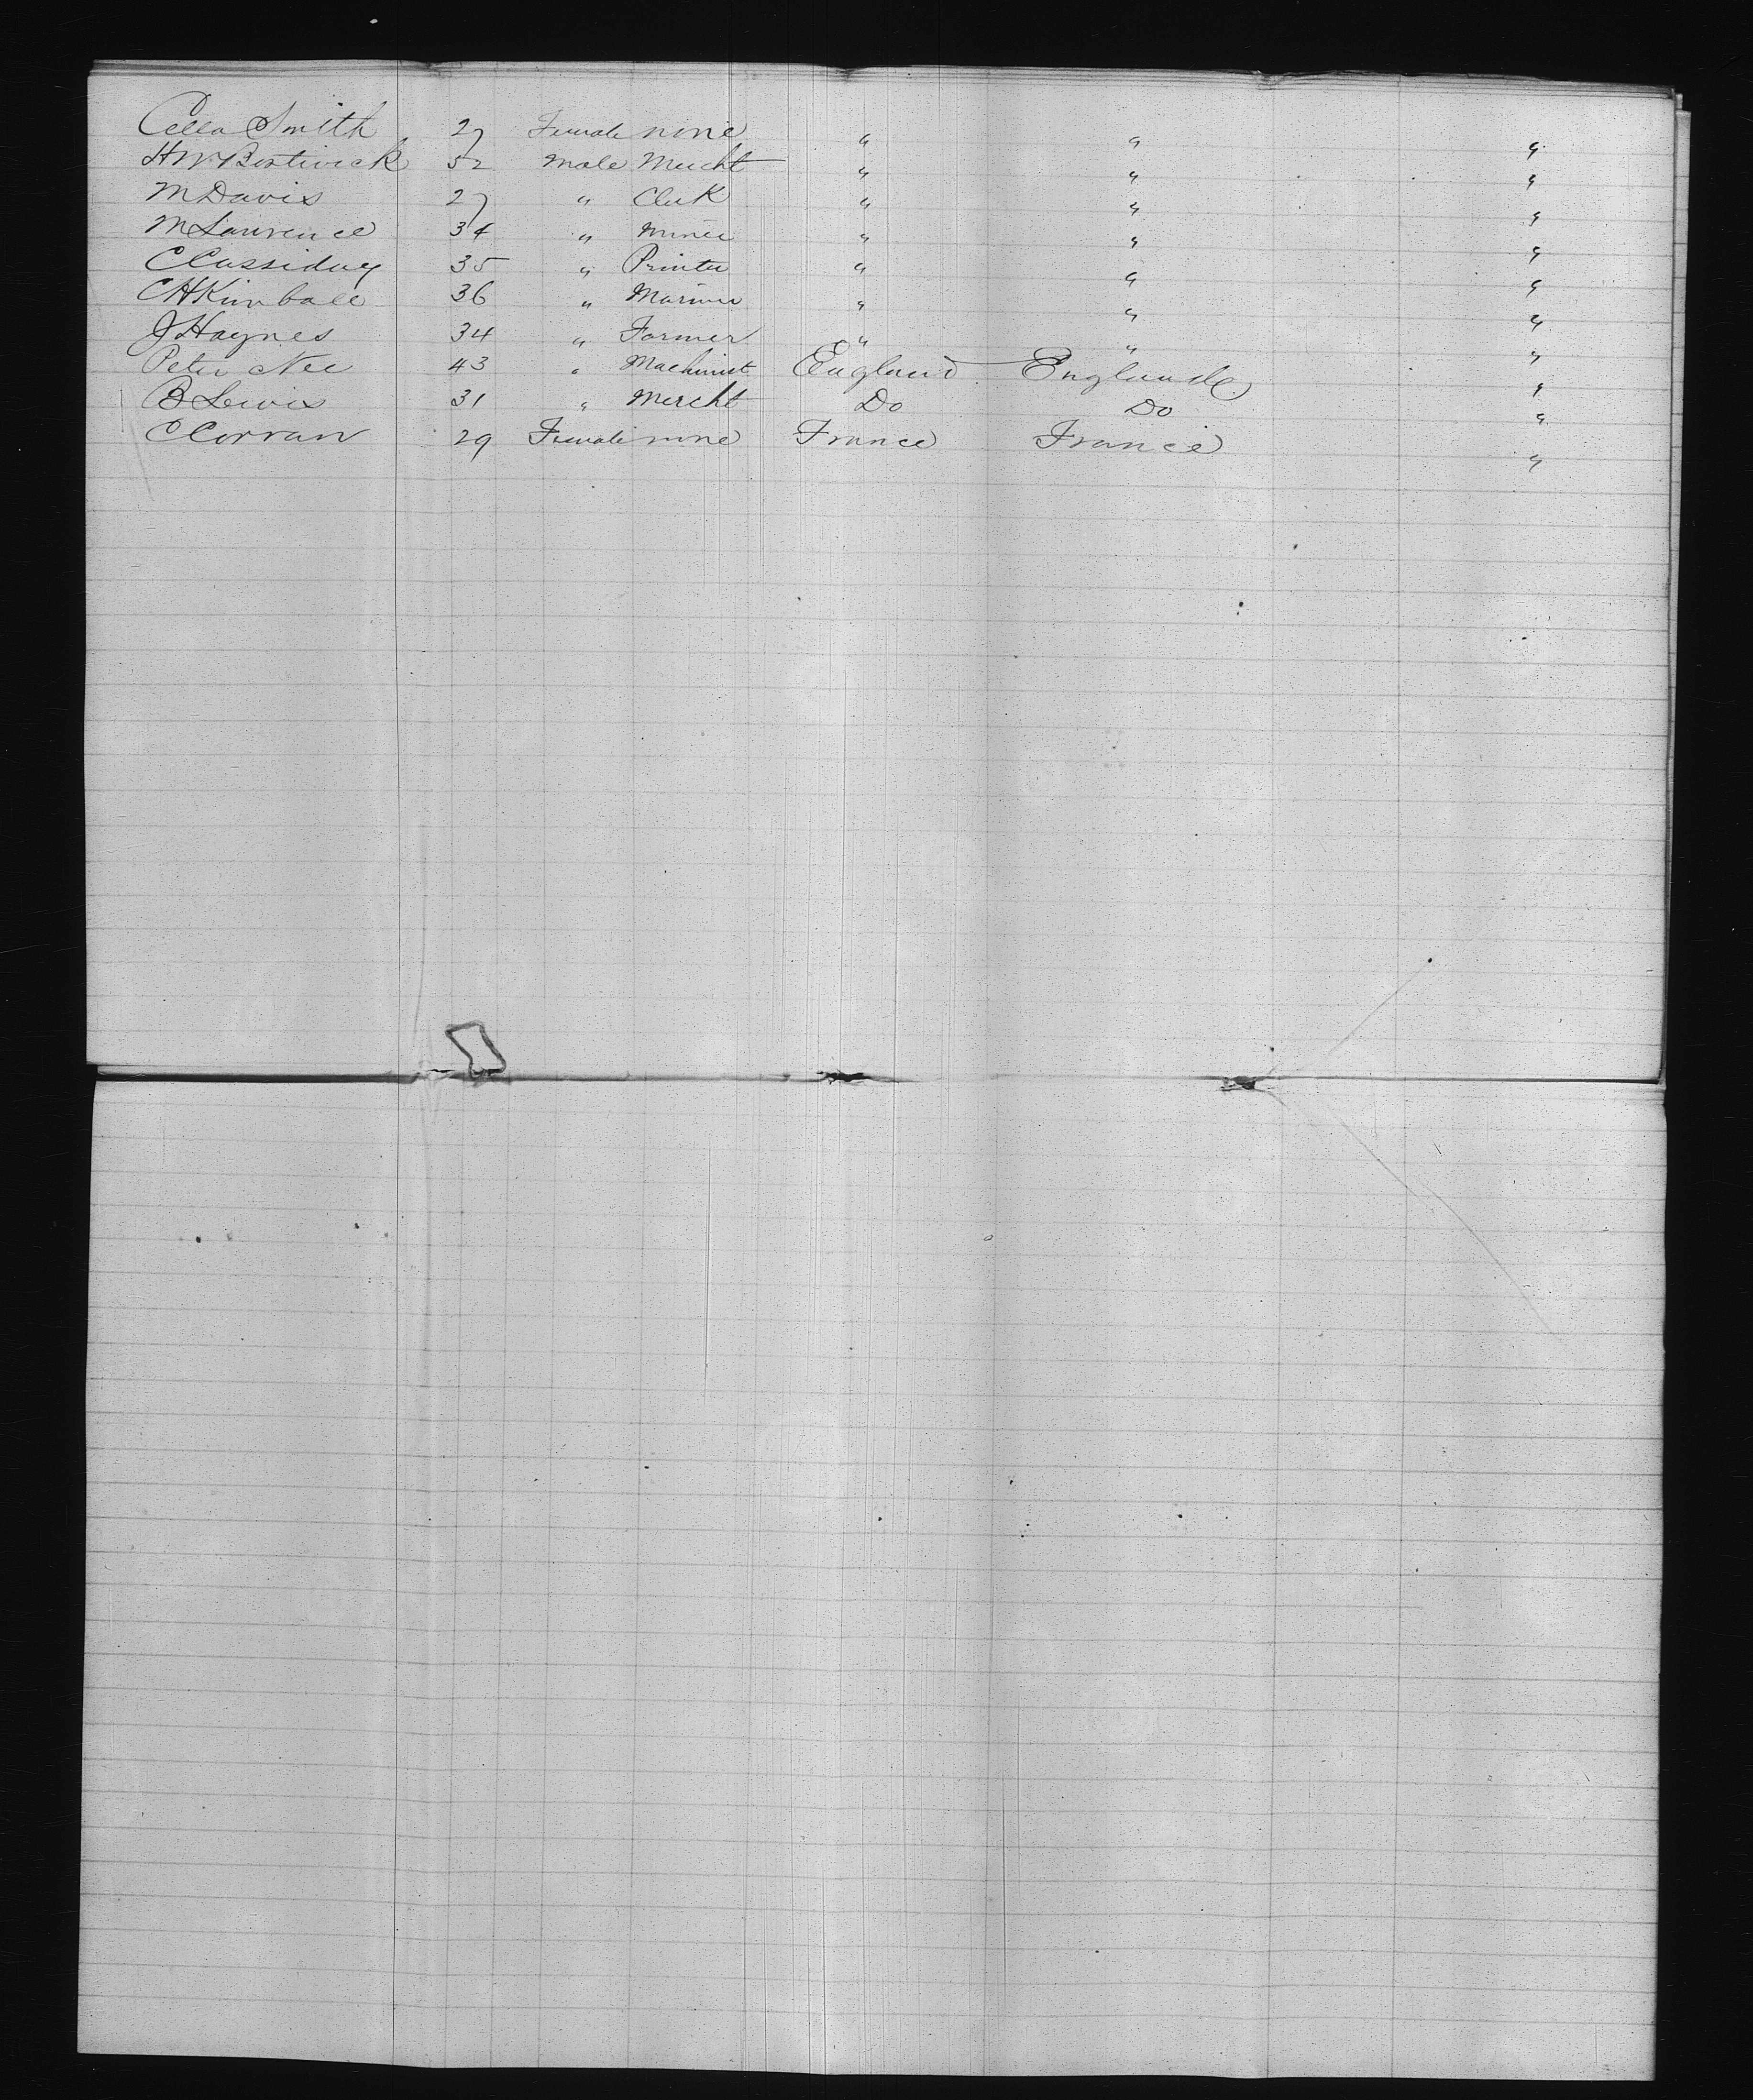 Cella Smith 27 Female none " " "
H W Bostwick 52 Male Mercht " " "
M Davis 27 " Clerk " " "
M Lawrence 34 " Miner " " "
C Cassiday 35 " Printer " " "
C H Kimball 36 " Mariner " " "
J Haynes 34 " Farmer " " "
Peter Nee 43 " Machinist England England "
B Lewis 31 " Mercht Do Do "
C Corran 29 Female none France France "